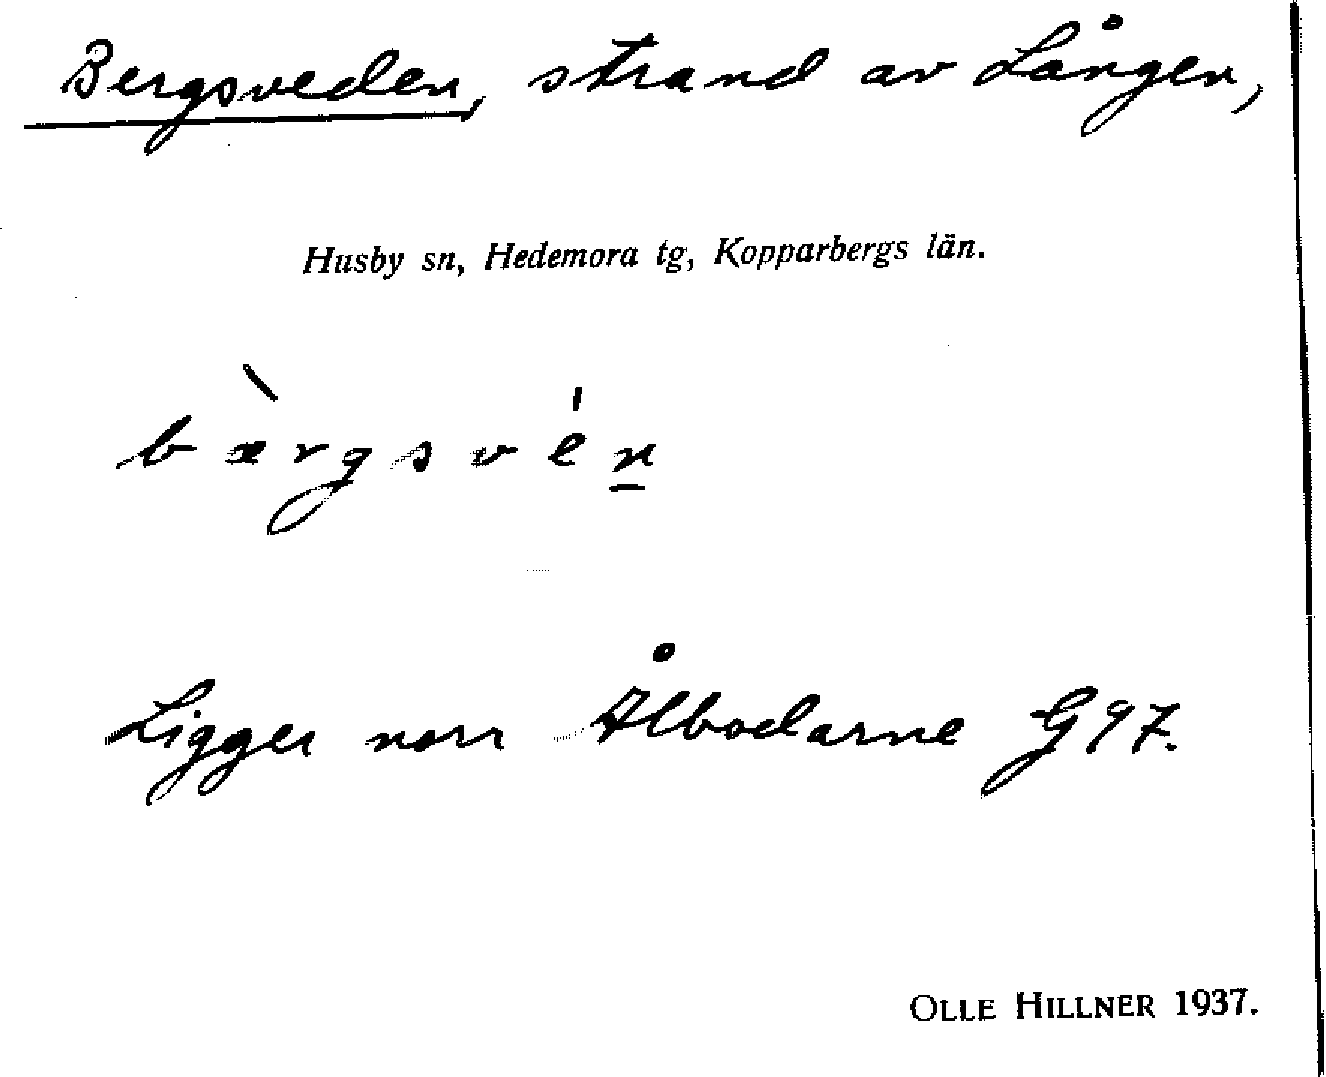 Bergsveden, strand av Lången,
Husby sn, Hedemora tg, Kopparbergs län.
bæ̀rgsvén̲
Ligger norr Ålbodarne G97.
OLLE HILLNER 1937.